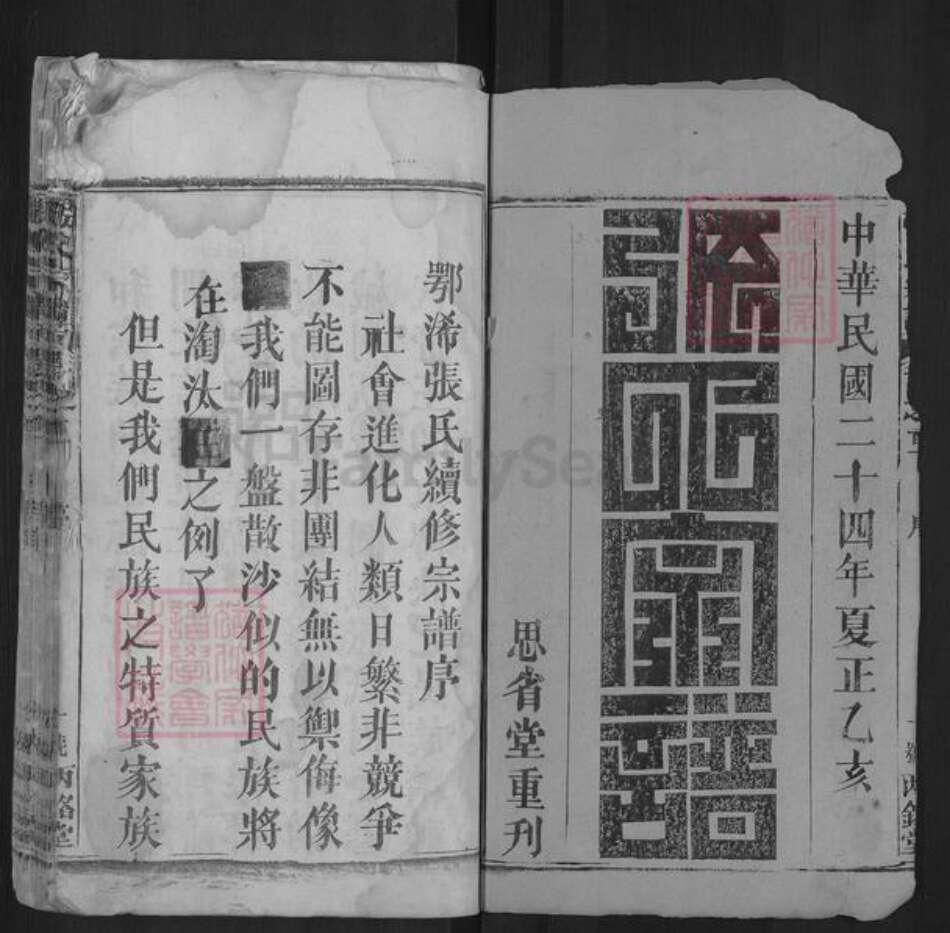 中華民國二十四年夏正乙亥
張氏宗譜
思省堂重刊
鄂浠張氏續修宗譜序
社會進化人類日繁非競爭
不能圖存非團結無以禦侮像
我們一盤散沙似的民族將
在淘汰之例了
但是我們民族之特質家族
FamilySearch